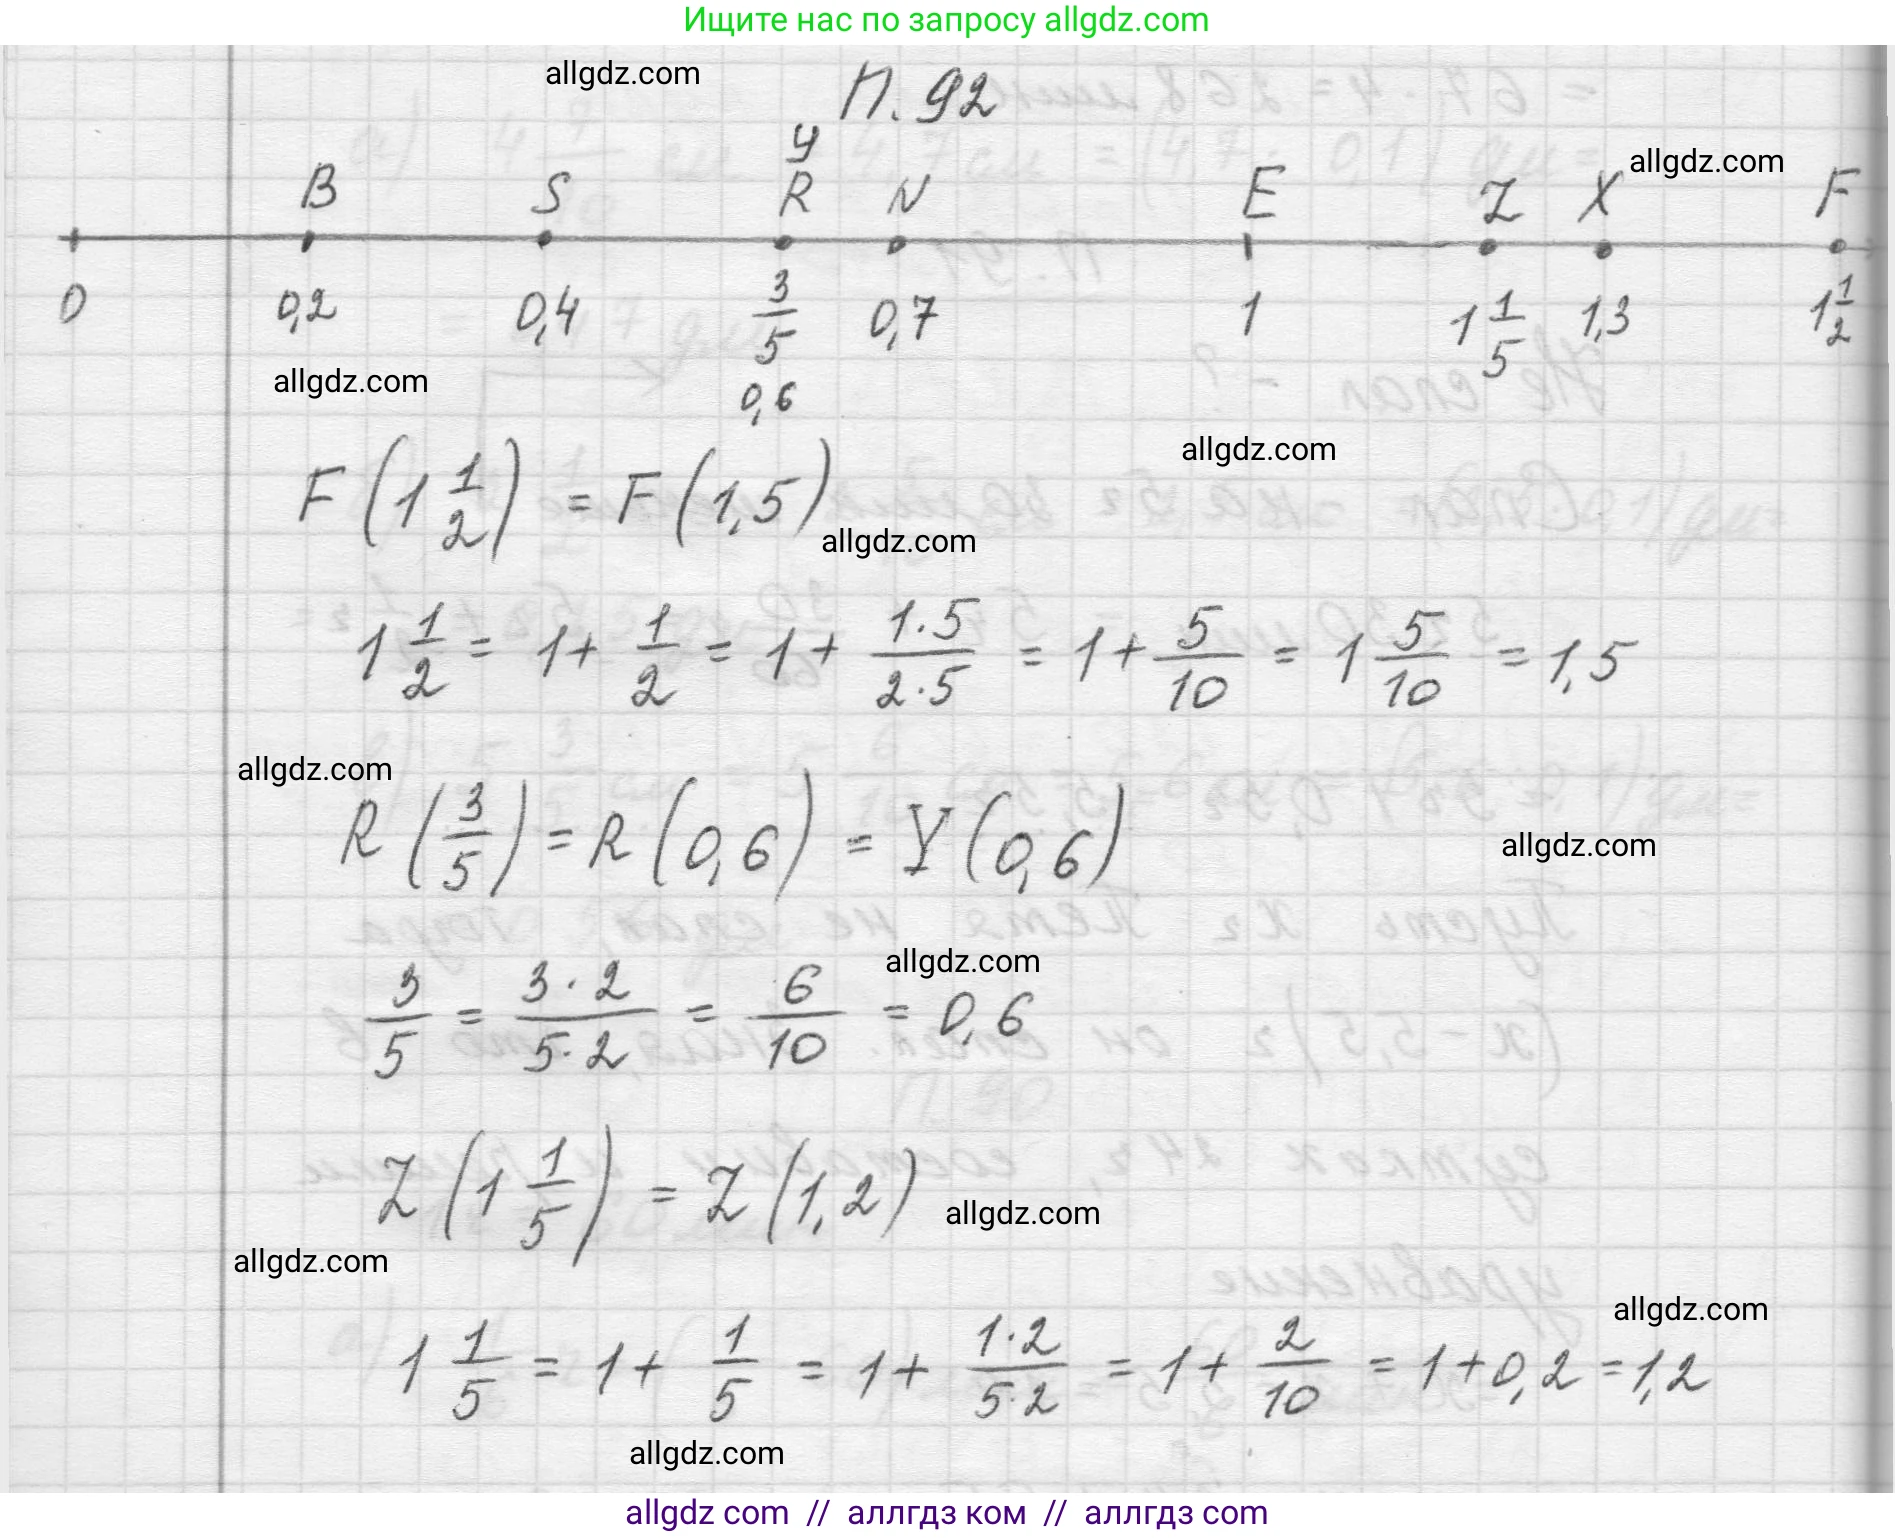 Ищите нас по запросу allgdz.com
allgdz.com
П. 92
allgdz.com
B S У R N E Z X F
0 0,2 0,4 3/5 0,7 1 1 1/5 1,3 1 1/2
allgdz.com
0,6
allgdz.com
F(1 1/2) = F(1,5)
allgdz.com
1 1/2 = 1 + 1/2 = 1 + 1·5/2·5 = 1 + 5/10 = 1 5/10 = 1,5
allgdz.com
R(3/5) = R(0,6) = Y(0,6)
allgdz.com
allgdz.com
3/5 = 3·2/5·2 = 6/10 = 0,6
Z(1 1/5) = Z(1,2)
allgdz.com
allgdz.com
allgdz.com
1 1/5 = 1 + 1/5 = 1 + 1·2/5·2 = 1 + 2/10 = 1 + 0,2 = 1,2
allgdz.com
allgdz.com // аллгдз ком // аллгдз com